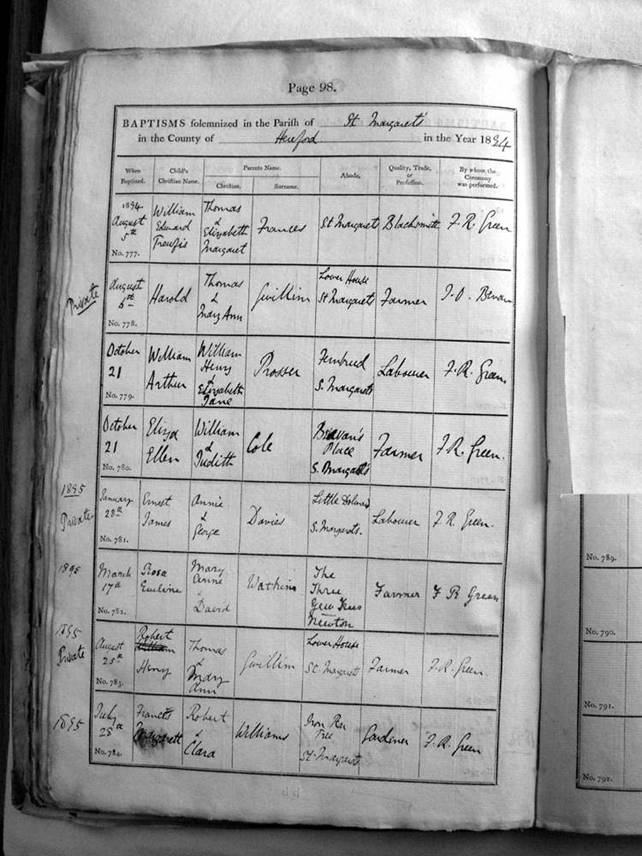 Page 98.
BAPTISMS solemnized in the Parish of St Margarets
in the County of Hereford in the Year 1894
When Baptized. Child's Christian Name. Parents Name. Christian. Surname. Abode. Quality, Trade, or Profession. By whom the Ceremony was performed.
1894 August 5th No. 777. William Edward Thomas & Elizabeth Margaret Frances St Margarets Blacksmith F. R. Green
Private August 6th No. 778. Harold Thomas & Mary Ann Gwillim Lower House St Margarets Farmer
October 21 No. 779. William Arthur William Henry & Elizabeth Jane Prosser S. Margarets Labourer F. R. Green.
October 21 No. 780. Eliza Ellen William & Judith Cole Place S. Margarets Farmer F. R. Green.
1895 Private January 28th No. 781. Ernest James Annie & George Davies Little S. Margarets. Labourer F. R. Green.
1895 March 17th No. 782. Rosa Eveline Mary Anne & David Watkins The Three Yew Trees Newton Farmer F R Green
1895 Private August 25th No. 783. Robert William Henry Thomas & Mary Ann Gwillim Lower House St. Margarets Farmer F. R. Green.
1895 July 28th No. 784. Frances Margarett Robert & Clara Williams Tree St Margarets Gardener F. R. Green
No. 789.
No. 790.
No. 791.
No. 792.